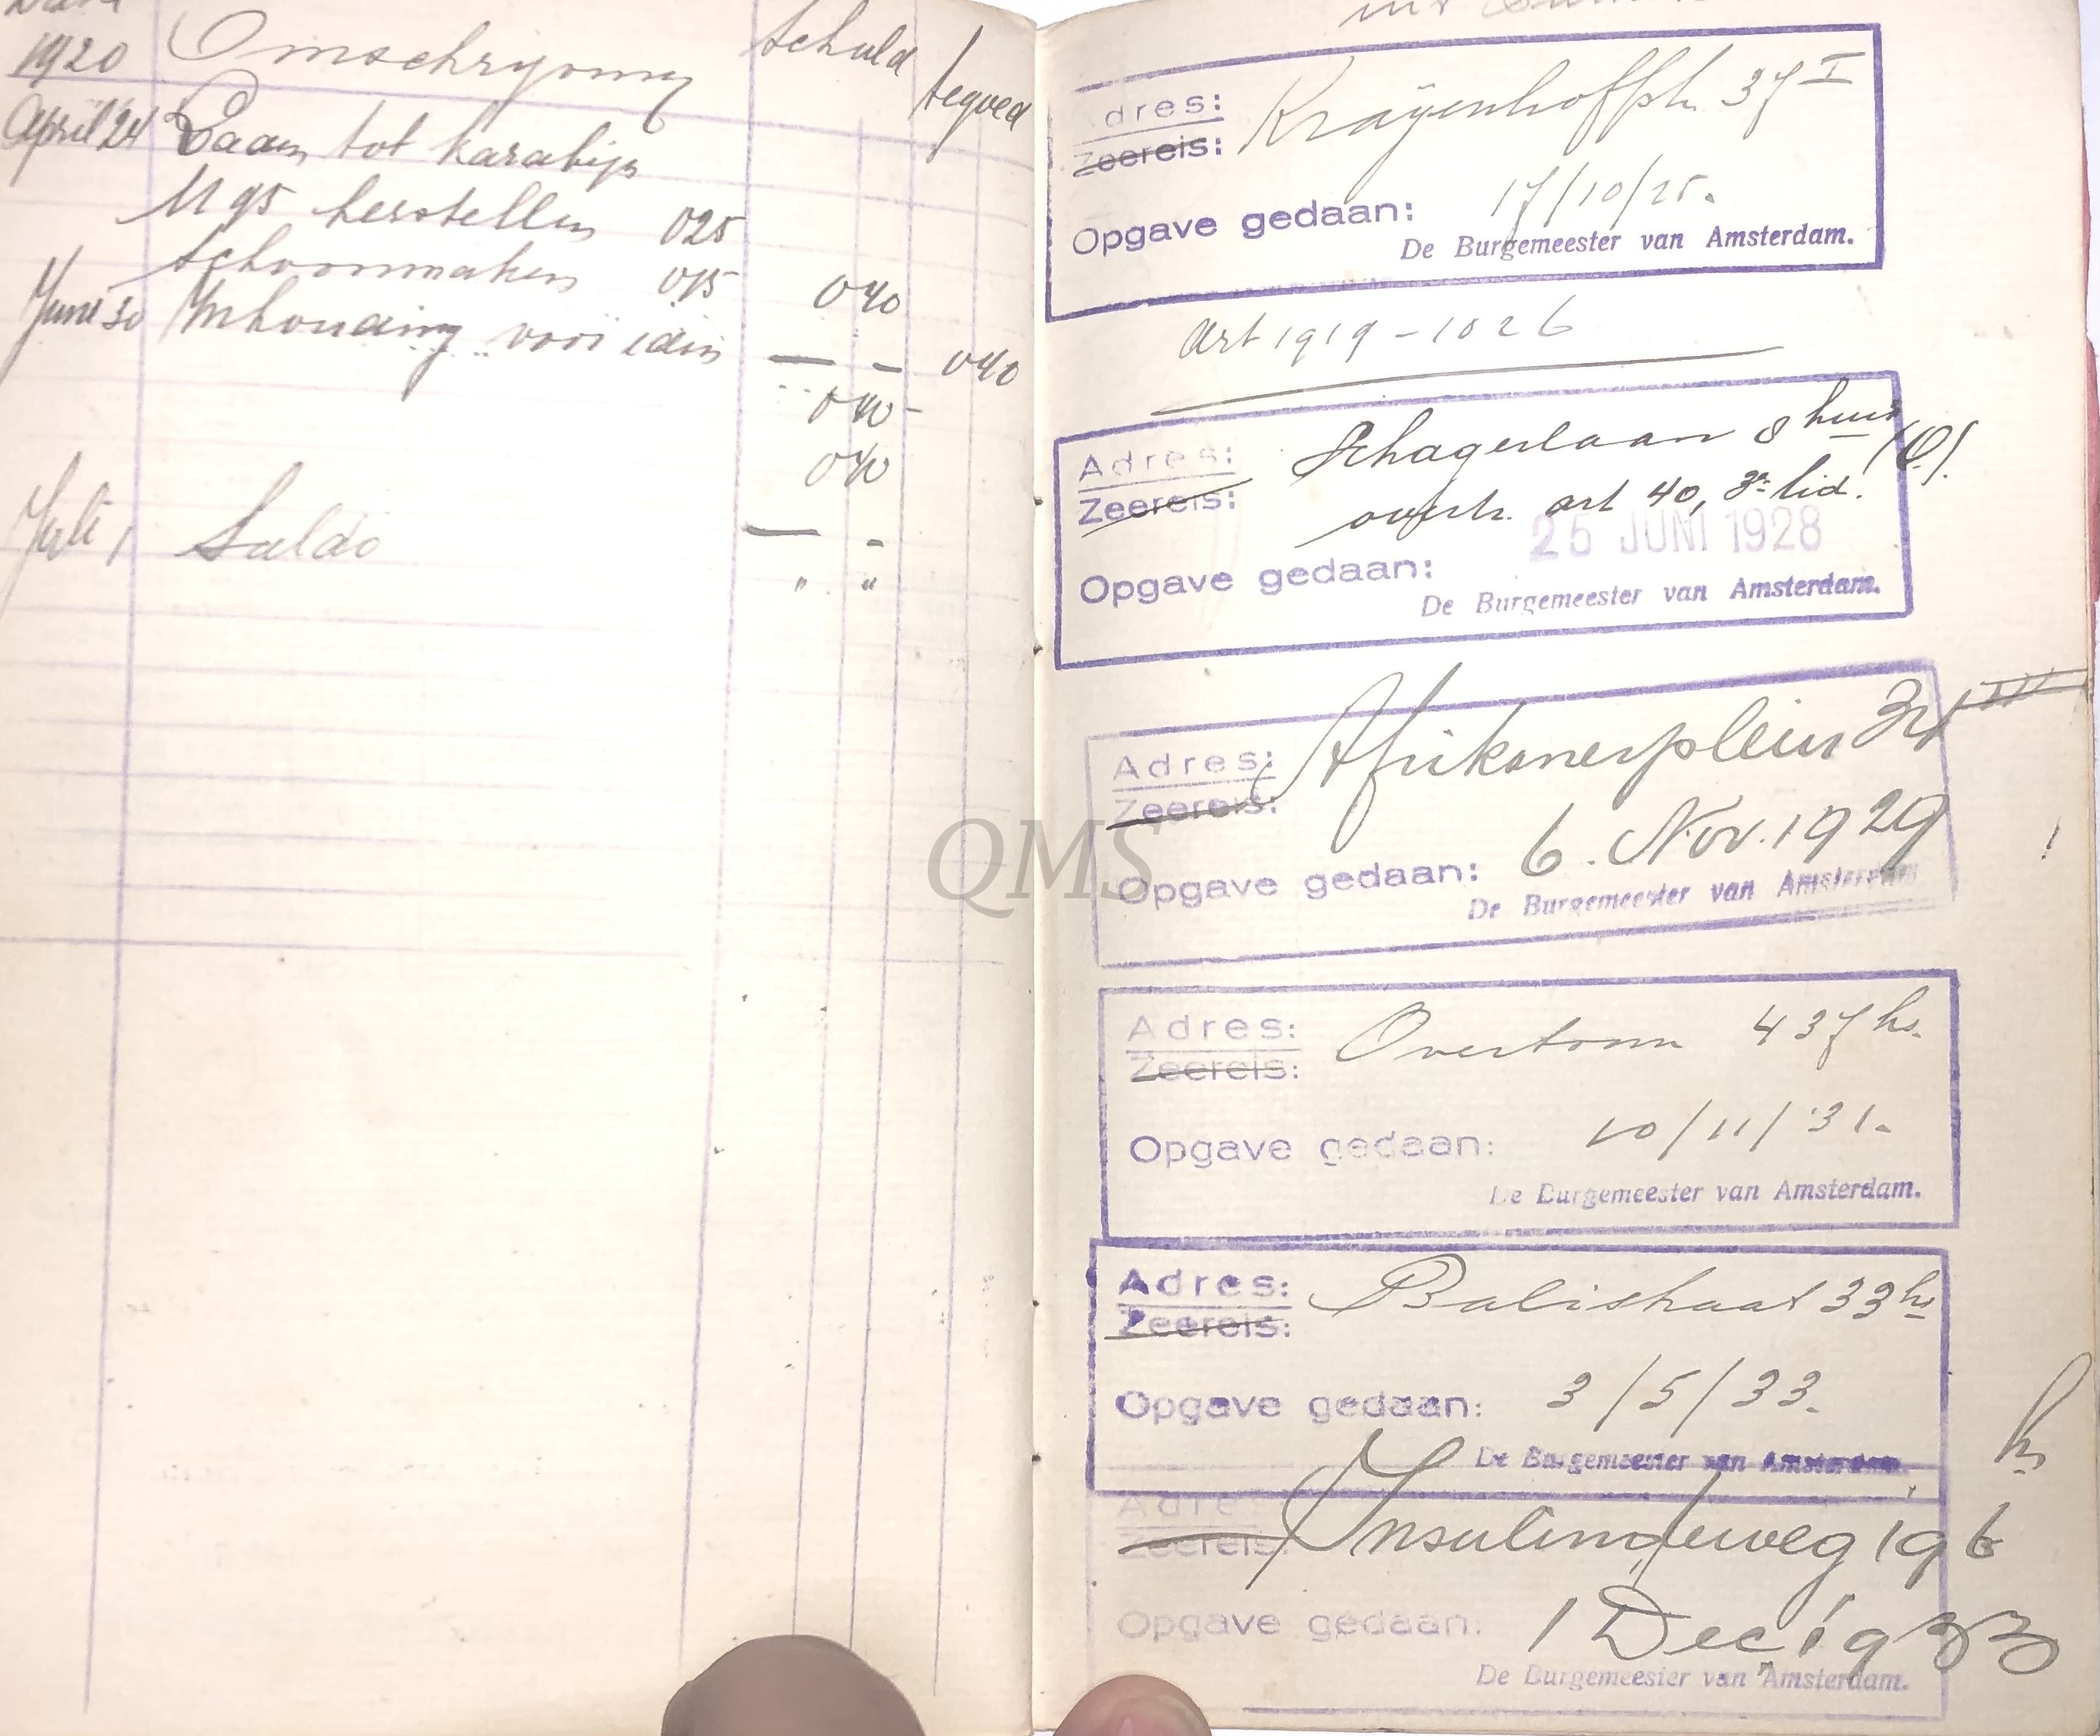 1920 Omschryving Schuld tegoed
April 24 Laan tot karabijn
M 95 herstellen 025
Schoonmaken 015 040
Juni 30 Inhouding voor idem — - 040
040 -
040
Juli 1 Saldo — -
" "
Adres: Krayenhoffstr. 37 I
Zeereis:
Opgave gedaan: 17/10/25.
De Burgemeester van Amsterdam.
Art 1919 - 1026
Adres: Schagerlaan 8 huis (O).
Zeereis: overtr. art 40, 3e lid.
Opgave gedaan: 25 JUNI 1928
De Burgemeester van Amsterdam.
Adres: Afrikanerplein
Zeereis:
Opgave gedaan: 6. Nov. 1929
De Burgemeester van Amsterdam
Adres: Overtoom 437 hs.
Zeereis:
Opgave gedaan: 10/11/'31.
De Burgemeester van Amsterdam.
Adres: Balistraat 33 hs
Zeereis:
Opgave gedaan: 3/5/33.
De Burgemeester van Amsterdam.
Adres Insulindeweg 196
Zeereis:
Opgave gedaan: 1 Dec. 1933
De Burgemeester van Amsterdam.
QMS